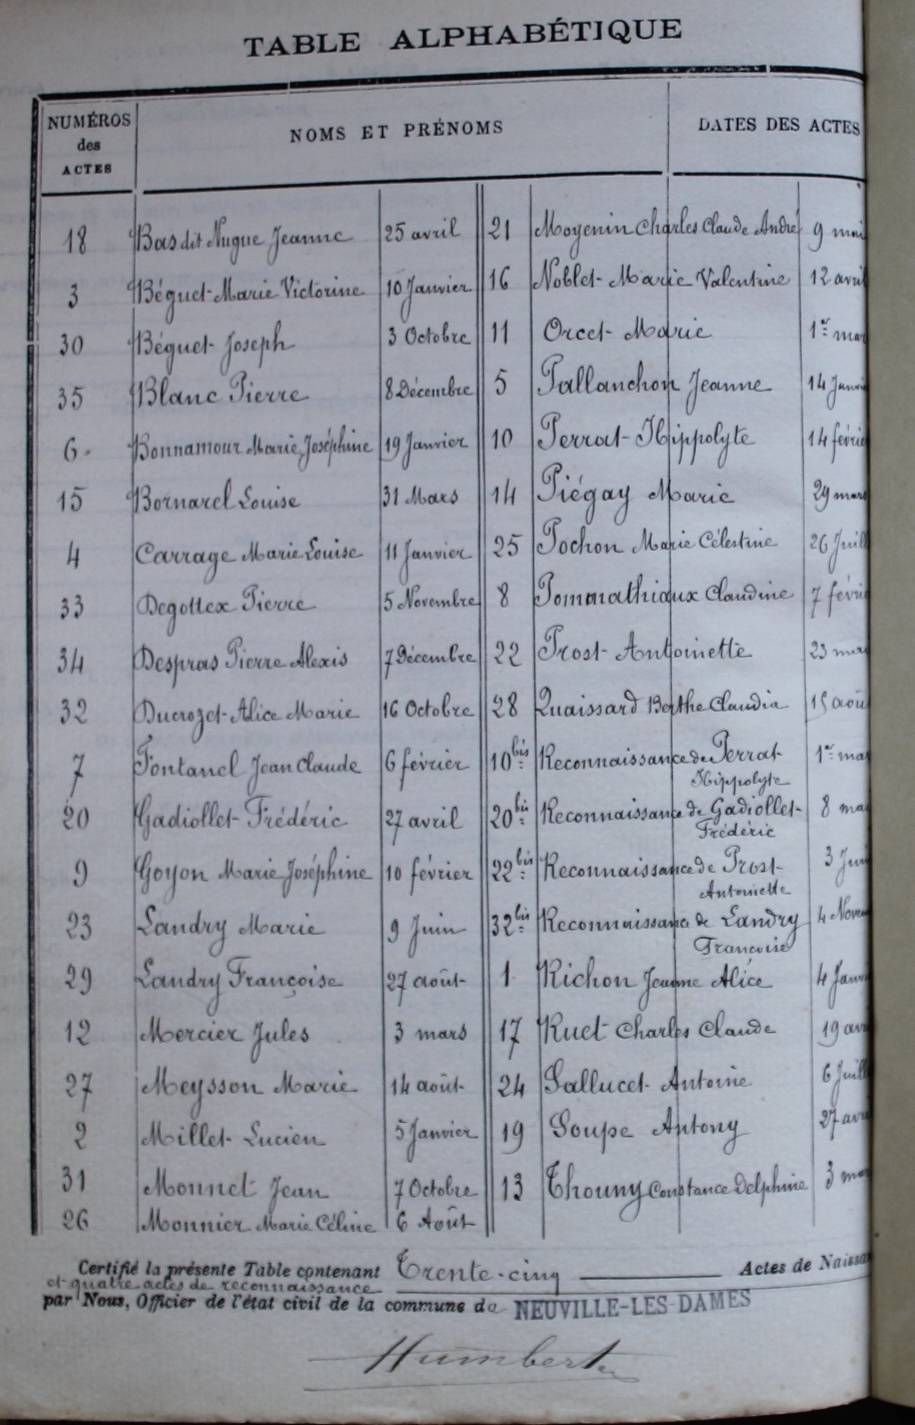 TABLE ALPHABÉTIQUE
NUMÉROS des ACTES
NOMS ET PRÉNOMS
DATES DES ACTES
18 Bas dit Nugue Jeanne 25 avril
3 Béguet Marie Victorine 10 Janvier
30 Béguet Joseph 3 Octobre
35 Blanc Pierre 8 Décembre
6 Bonnamour Marie Joséphine 19 Janvier
15 Bornarel Louise 31 Mars
4 Carrage Marie Louise 11 Janvier
33 Degottex Pierre 5 Novembre
34 Despras Pierre Alexis 7 Décembre
32 Ducrozet Alice Marie 16 Octobre
7 Fontanel Jean Claude 6 février
20 Gadiollet Frédéric 27 avril
9 Goyon Marie Joséphine 10 février
23 Landry Marie 9 Juin
29 Landry Françoise 27 août
12 Mercier Jules 3 mars
27 Meysson Marie 14 août
2 Millet Lucien 5 Janvier
31 Monnet Jean 7 Octobre
26 Monnier Marie Céline 6 Août
21 Moyenin Charles Claude André 9 mai
16 Noblet Marie Valentine 12 avril
11 Orcet Marie 1er mar
5 Pallanchon Jeanne 14 Janvi
10 Perrat Hippolyte 14 févrie
14 Piégay Marie 29 mars
25 Pochon Marie Célestine 26 Juill
8 Pommathiaux Claudine 7 févri
22 Prost Antoinette 23 mai
28 Quaissard Berthe Claudia 15 aoû
10 bis Reconnaissance de Perrat 1er ma
Hippolyte
20 bis Reconnaissance de Gadiollet 8 ma
Frédéric
22 bis Reconnaissance de Prost 3 Jui
Antoinette
32 bis Reconnaissance de Landry 4 Nove
Françoise
1 Richon Jeanne Alice 4 Janv
17 Ruet Charles Claude 19 avr
24 Sallucet Antoine 6 Juill
19 Soupe Antony 27 avr
13 Thouny Constance Delphine 3 ma
Certifié la présente Table contenant Trente-cinq Actes de Naissa
et quatre actes de reconnaissance
par Nous, Officier de l'état civil de la commune de NEUVILLE-LES-DAMES
Humbert